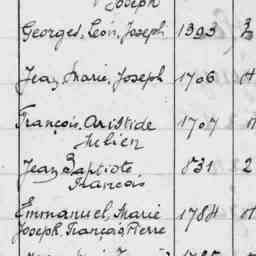 Joseph
Georges, Léon, Joseph 1393
Jean, Marie, Joseph 1706
François, Aristide 1707
Julien
Jean Baptiste 831 2
François
Emmanuel, Marie 1784
Joseph, François, Pierre